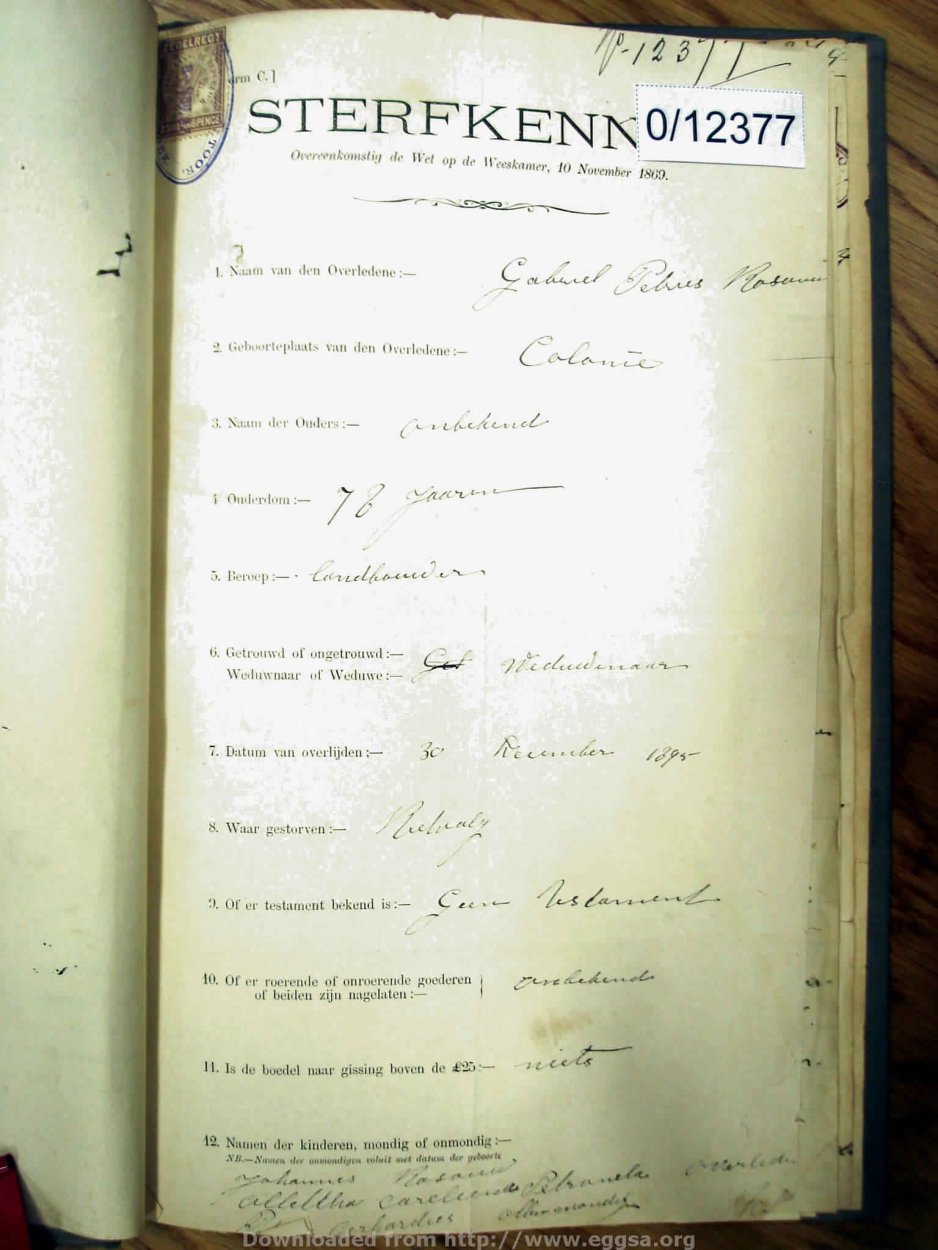 No. 12377
ZEGELREGT
orm C.]
STERFKENN
0/12377
Overeenkomstig de Wet op de Weeskamer, 10 November 1869.
1. Naam van den Overledene :— Gabriel Petrus Rosouw
2. Geboorteplaats van den Overledene :— Colonie
3. Naam der Ouders :— onbekend
4 Ouderdom :— 78 Jaaren
5. Beroep :— Landbouwer
6. Getrouwd of ongetrouwd :—
Weduwnaar of Weduwe :— Get Weduwenaar
7. Datum van overlijden :— 30 December 1895
8. Waar gestorven :—
9. Of er testament bekend is :— Geen Testament
10. Of er roerende of onroerende goederen
of beiden zijn nagelaten :— onbekend
11. Is de boedel naar gissing boven de £25 :— niets
12. Namen der kinderen, mondig of onmondig :—
NB.—Namen der onmondigen voluit met datum der geboorte
Johannes Rosouw
Petronela overleden
Gerhardus
Downloaded from http://www.eggsa.org